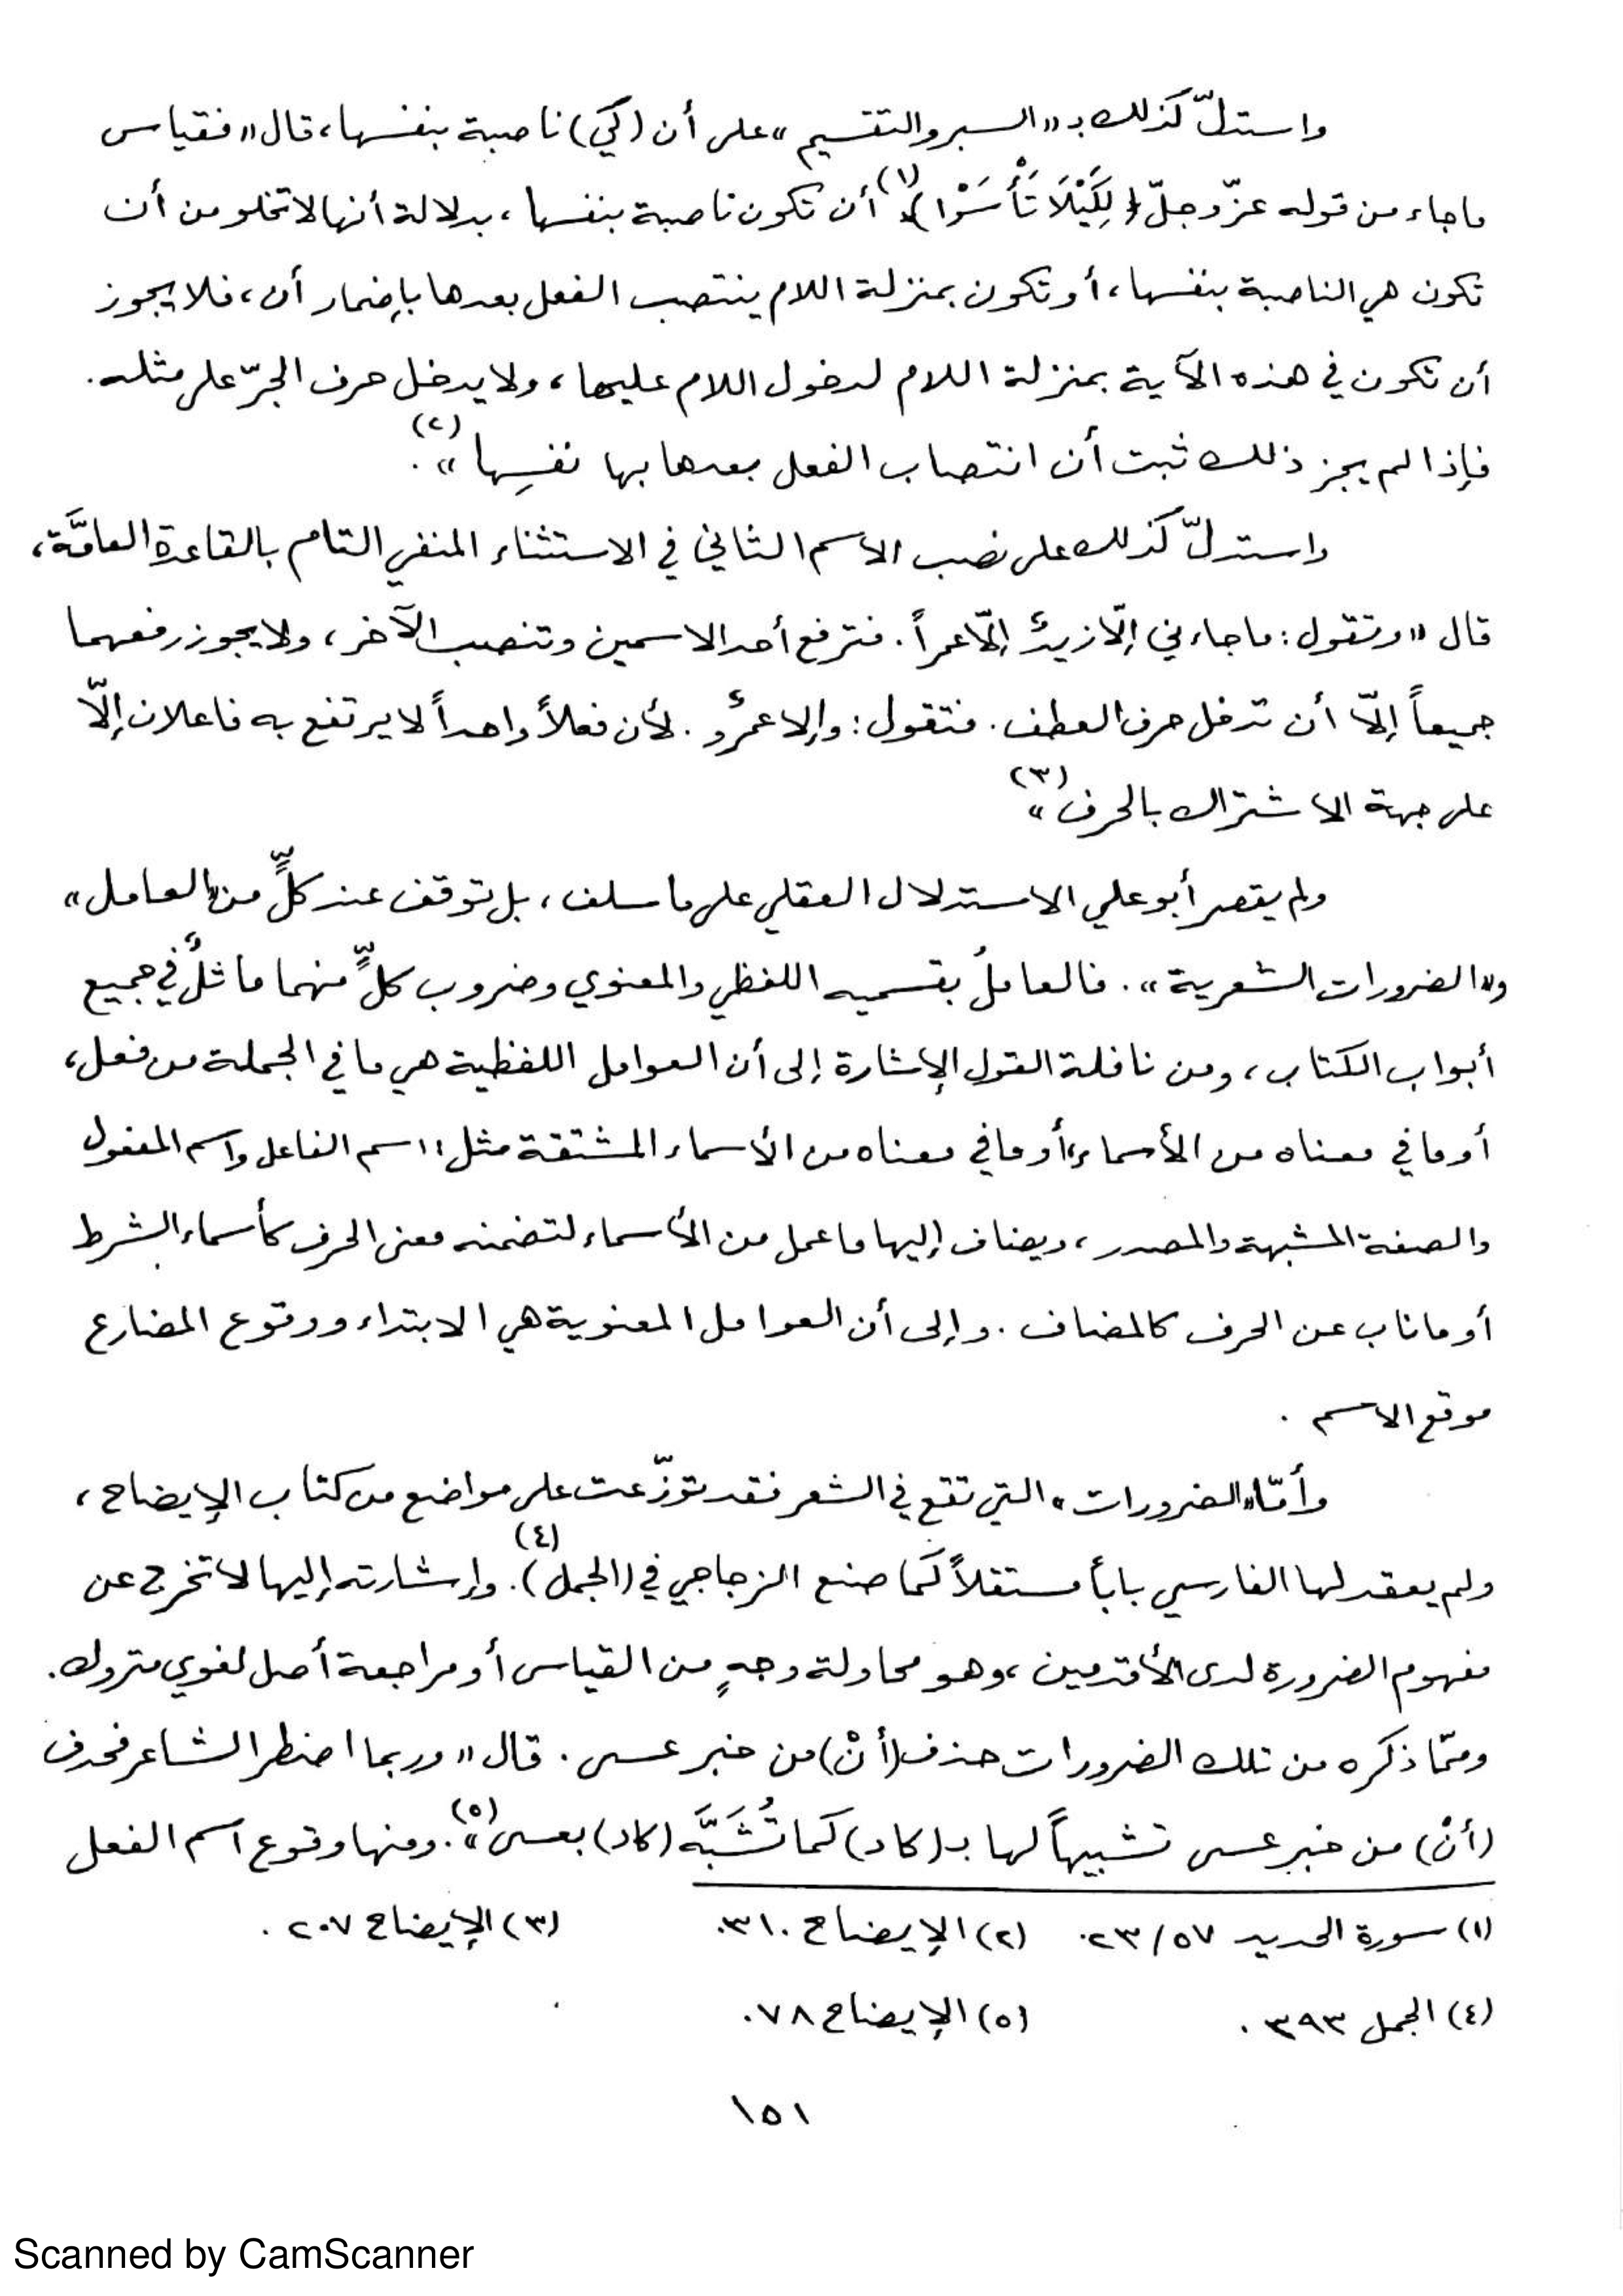 واستدلّ كذلك بـ «السبر والتقسيم» على أن (كي) ناصبة بنفسها، قال «فقياس
ما جاء من قوله عزّ وجلّ ﴿لِكَيْلَا تَأْسَوْا﴾(١) أن تكون ناصبة بنفسها، بدلالة أنها لا تخلو من أن
تكون هي الناصبة بنفسها، أو تكون بمنزلة اللام ينتصب الفعل بعدها بإضمار أن، فلا يجوز
أن تكون في هذه الآية بمنزلة اللام لدخول اللام عليها، ولا يدخل حرف الجرّ على مثله.
فإذا لم يجز ذلك ثبت أن انتصاب الفعل بعدها بها نفسِها»(٢).
واستدلّ كذلك على نصب الاسم الثاني في الاستثناء المنفي التام بالقاعدة العامَّة،
قال «وتقول: ما جاءني إلّا زيدٌ إلّا عمراً. فترفع أحد الاسمين وتنصب الآخر، ولا يجوز رفعهما
جميعاً إلّا أن تدخل حرف العطف. فتقول: وإلا عمرٌو. لأن فعلاً واحداً لا يرتفع به فاعلان إلّا
على جهة الاشتراك بالحرف»(٣)
ولم يقصر أبو علي الاستدلال العقلي على ما سلف، بل توقف عند كلٍّ من «العامل»
و«الضرورات الشعرية». فالعاملُ بقسميه اللفظي والمعنوي وضروب كلٍّ منهما ماثلٌ في جميع
أبواب الكتاب، ومن نافلة القول الإشارة إلى أن العوامل اللفظية هي ما في الجملة من فعل،
أو ما في معناه من الأسماء، أو ما في معناه من الأسماء المشتقة مثل: اسم الفاعل واسم المفعول
والصفة المشبهة والمصدر، ويضاف إليها ما عمل من الأسماء لتضمنه معنى الحرف كأسماء الشرط
أو ما ناب عن الحرف كالمضاف. وإلى أن العوامل المعنوية هي الابتداء ووقوع المضارع
موقع الاسم.
وأمّا «الضرورات» التي تقع في الشعر فقد توزّعت على مواضع من كتاب الإيضاح،
ولم يعقد لها الفارسي باباً مستقلاً كما صنع الزجاجي في (الجمل)(٤). وإشارته إليها لا تخرج عن
مفهوم الضرورة لدى الأقدمين، وهو محاولة وجهٍ من القياس أو مراجعة أصل لغوي متروك.
وممّا ذكره من تلك الضرورات حذف (أنْ) من خبر عسى. قال «وربما اضطر الشاعر فحذف
(أنْ) من خبر عسى تشبيهاً لها بـ (كاد) كما تُشَبَّه (كاد) بعسى»(٥). ومنها وقوع اسم الفعل
(١) سورة الحديد ٢٣/٥٧. (٢) الإيضاح ٣١٠. (٣) الإيضاح ٢٠٧.
(٤) الجمل ٣٩٣. (٥) الإيضاح ٧٨.
١٥١
Scanned by CamScanner